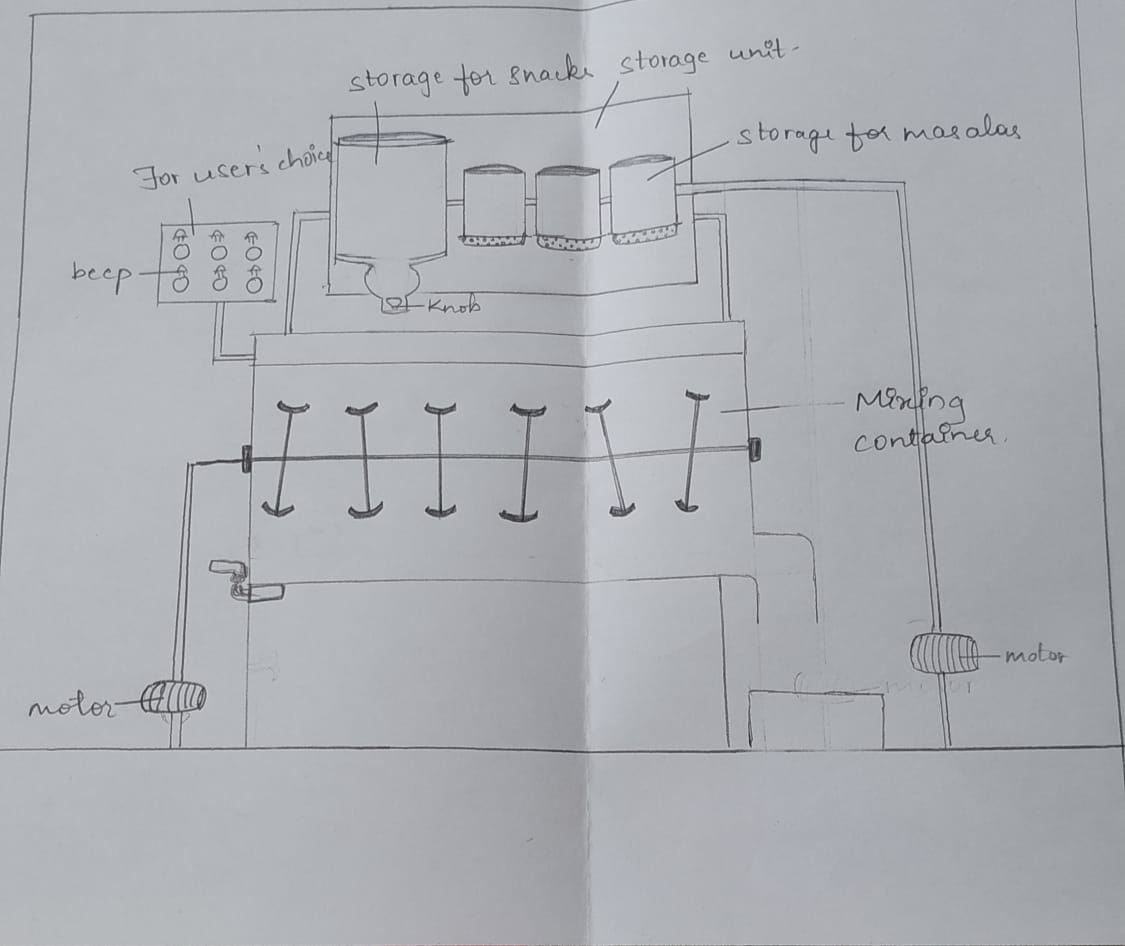 storage for snacks
storage unit-
storage for masalas
For user's choice
beep
Knob
Mixing
container.
motor
motor
motor